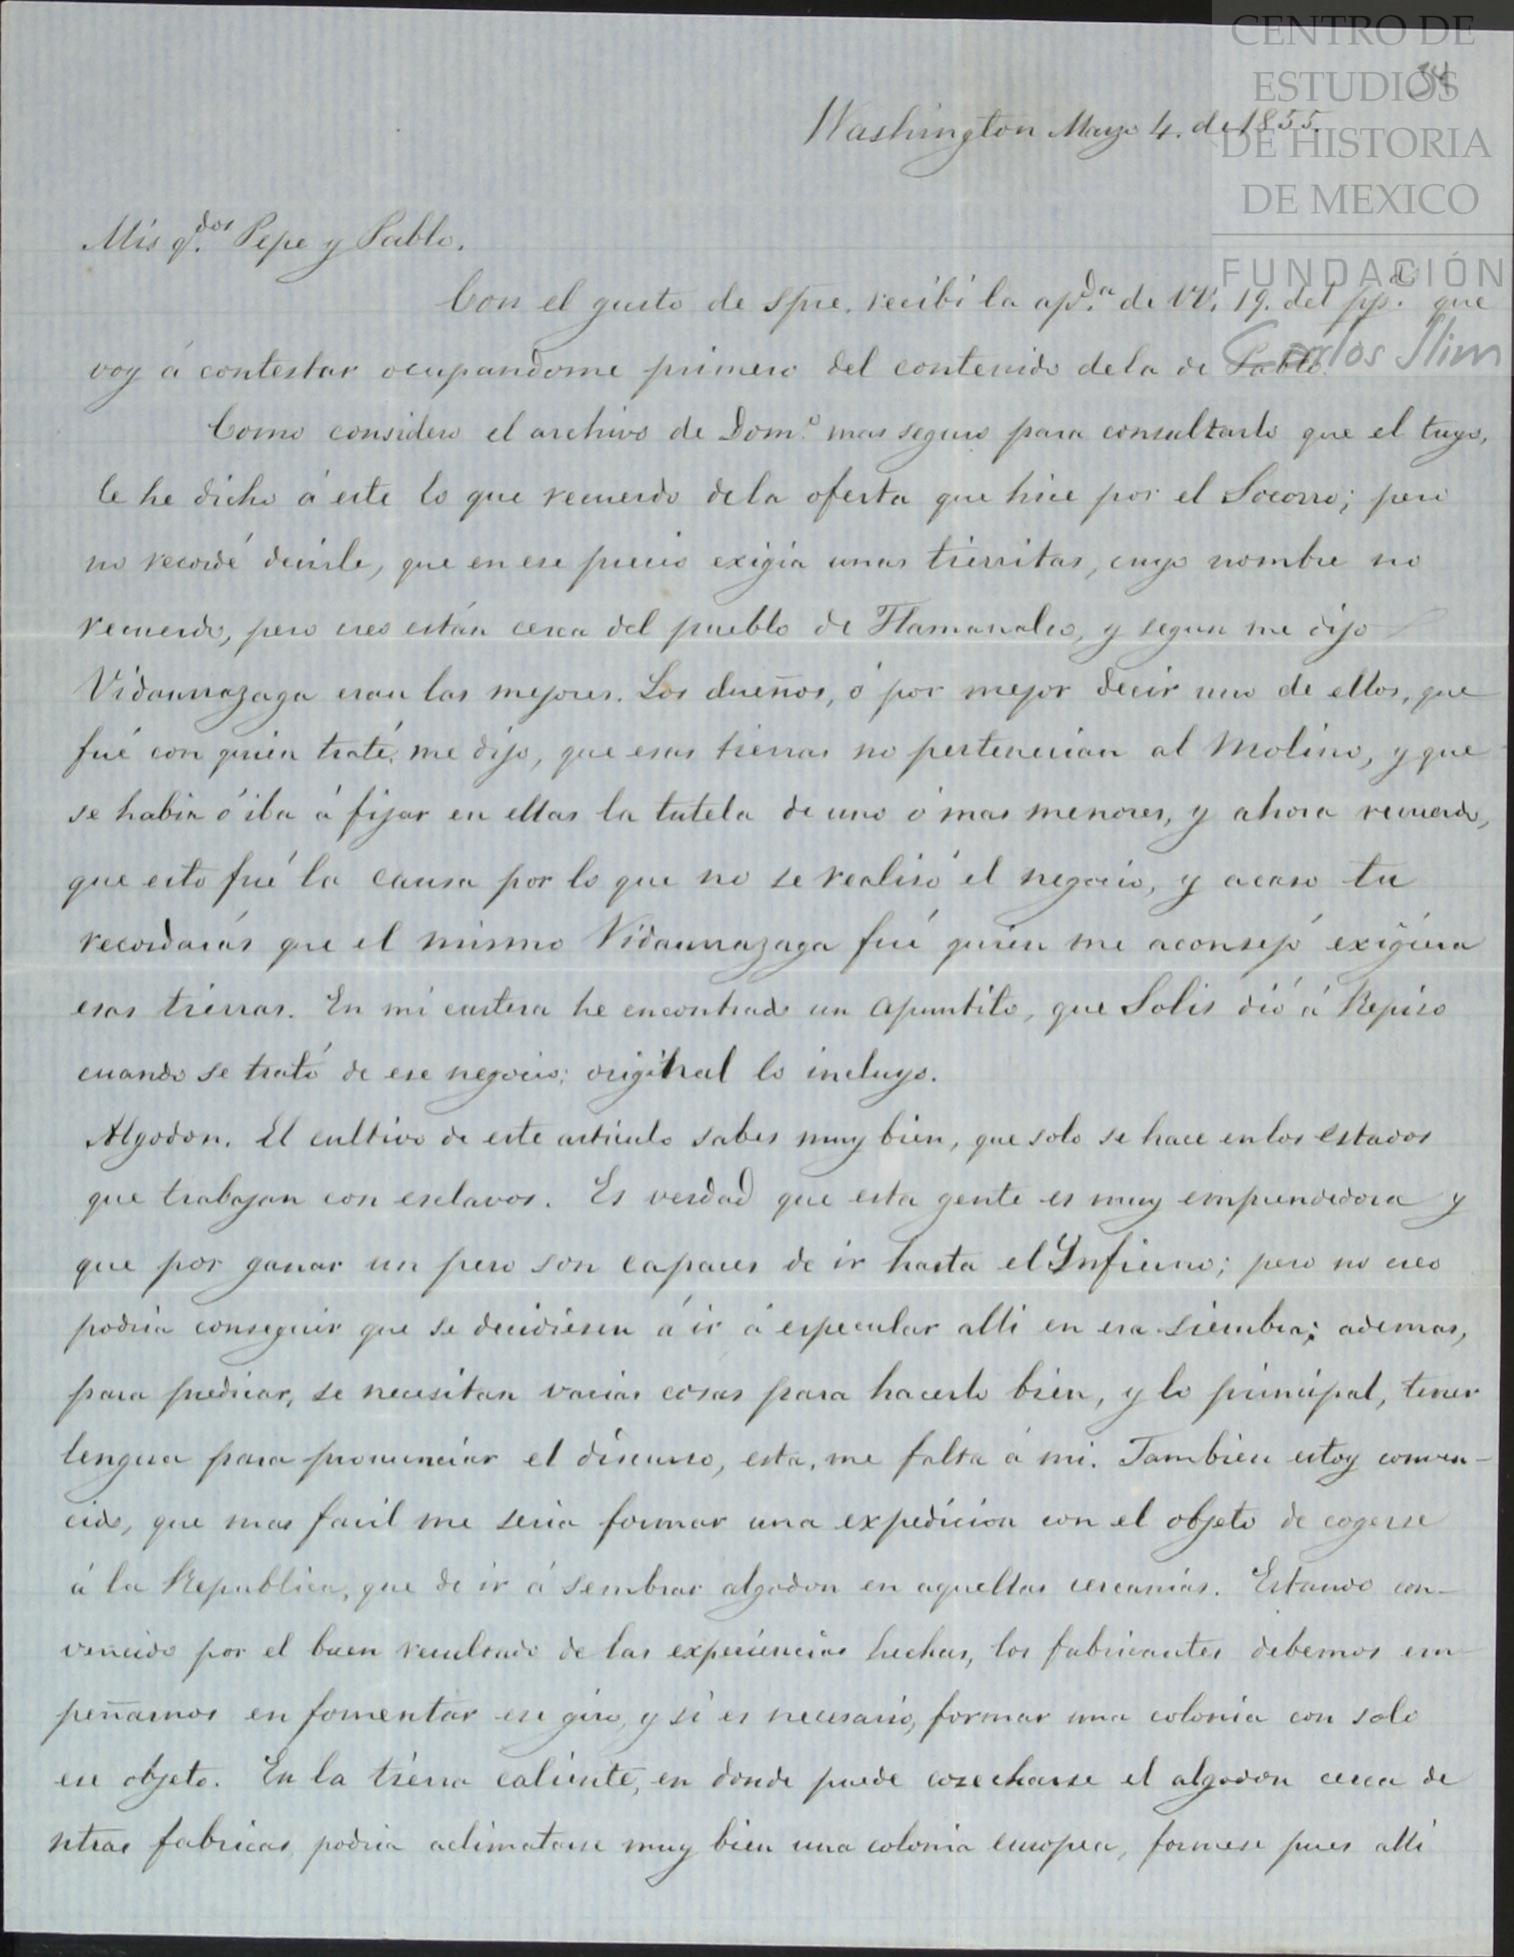 CENTRO DE
ESTUDIOS
DE HISTORIA
DE MEXICO
FUNDACIÓN
Carlos Slim
34
Washington Mayo 4. de 1855.
Mis q.dos Pepe y Pablo.
Con el gusto de spre. recibí la apda. de VV. 19. del ppdo. que
voy á contestar ocupandome primero del contenido dela de Pablo.
Como considero el archivo de Dom.o mas seguro para consultarlo que el tuyo,
le he dicho á este lo que recuerdo dela oferta que hice por el Socorro; pero
no recordé decirle, que en ese precio exigia unas tierritas, cuyo nombre no
recuerdo, pero creo están cerca del pueblo de Tlamanalco, y segun me dijo
Vidaurrazaga eran las mejores. Los dueños, ó por mejor decir uno de ellos, que
fué con quien traté, me dijo, que esas tierras no pertenecian al Molino, y que
se habia ó iba á fijar en ellas la tutela de uno ó mas menores, y ahora recuerdo,
que esto fué la causa por lo que no se realisó el negocio, y acaso tu
recordarás que el mismo Vidaurrazaga fué quien me aconsejó exigiera
esas tierras. En mi cartera he encontrado un apuntito, que Solis dió á Repiso
cuando se trató de ese negocio; original lo incluyo.
Algodon. El cultivo de este articulo sabes muy bien, que solo se hace en los estados
que trabajan con esclavos. Es verdad que esta gente es muy emprendedora y
que por ganar un peso son capaces de ir hasta el Infierno; pero no creo
podria conseguir que se decidiesen á ir á especular alli en esa siembra; ademas,
para predicar, se necesitan varias cosas para hacerlo bien, y lo principal, tener
lengua para pronunciar el discurso, esta, me falta á mi. Tambien estoy conven-
cido, que mas facil me seria formar una expedicion con el objeto de cogerse
á la Republica, que de ir á sembrar algodon en aquellas cercanias. Estando con-
vencido por el buen resultado de las experiencias hechas, los fabricantes debemos em
peñarnos en fomentar ese giro, y si es necesario, formar una colonia con solo
ese objeto. En la tierra caliente, en donde puede cosecharse el algodon cerca de
ntras fabricas, podria aclimatarse muy bien una colonia europea, formese pues alli